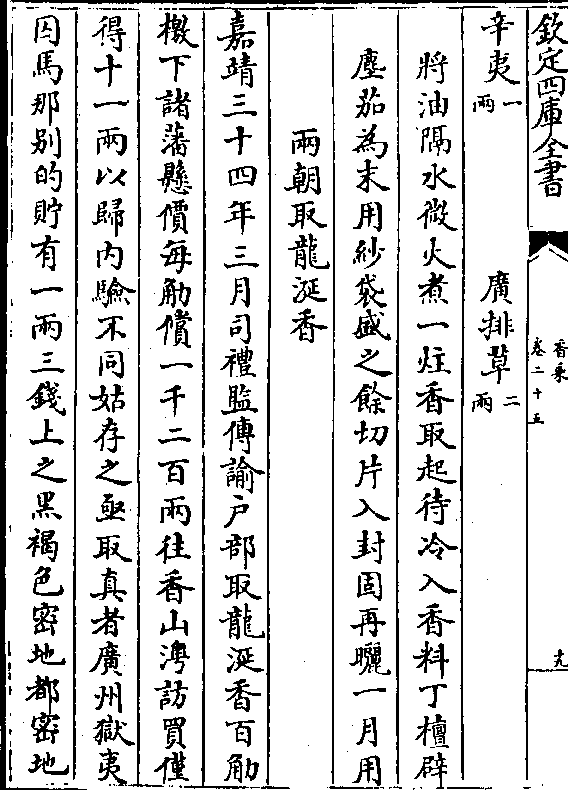 欽定四庫全書
香乘
卷二十五
十九
辛夷一兩
廣排草二兩
將油隔水微火煮一炷香取起待冷入香料丁檀辟
塵茄為末用紗袋盛之餘切片入封固再曬一月用
兩朝取龍涎香
嘉靖三十四年三月司禮監傳諭戶部取龍涎香百觔
檄下諸藩懸價每觔償一千二百兩往香山灣訪買僅
得十一兩以歸内驗不同姑存之亟取真者廣州獄夷
囚馬那别的貯有一兩三錢上之黑褐色密地都密地